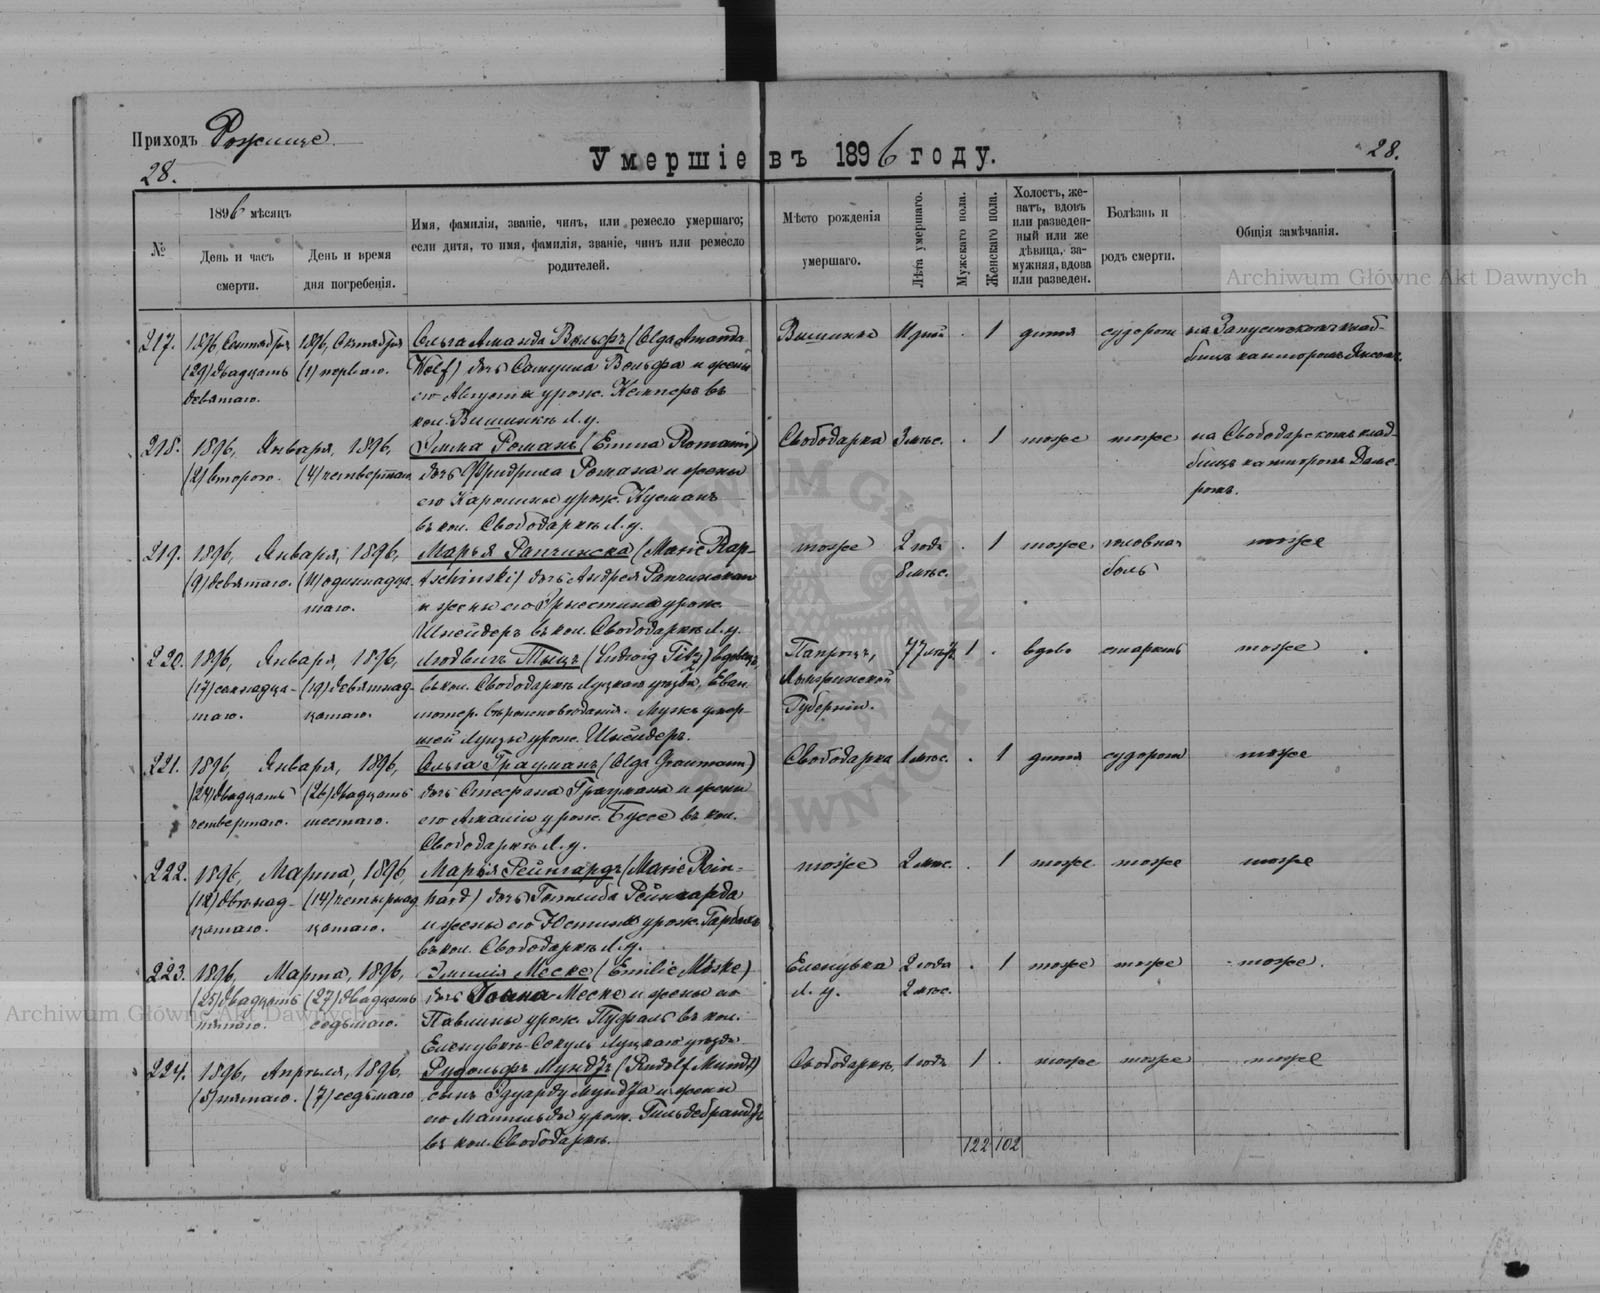 Приходъ Рожище
28.
Умершіе въ 1896 году.
28.
№
1896 мѣсяцъ
День и часъ смерти.
День и время дня погребенія.
Имя, фамилія, званіе, чинъ, или ремесло умершаго;
если дитя, то имя, фамилія, званіе, чинъ или ремесло
родителей.
Мѣсто рожденія
умершаго.
Лѣта умершаго.
Мужскаго пола.
Женскаго пола.
Холостъ, же-
натъ, вдовъ
или разведен-
ный или же
дѣвица, за-
мужняя, вдова
или разведен.
Болѣзнь и
родъ смерти.
Общія замѣчанія.
Archiwum Główne Akt Dawnych
217. 1896 Сентября 1896, Октября Ольга Аманда Вольфъ (Olga Amanda Вишинки 1 дитя судороги
(29) двадцать (1) перваго. Wolf) дочь Самуила Вольфа и жены
девятаго. его Августы урож. въ
кол. Вишинкѣ Л. у.
218. 1896, Января, 1896, Эмма Романъ (Emma Romann) Свободарка 3 мѣс. 1 тоже тоже на Свободарскомъ клад-
(2) второго. (4) четвертаго дочь Фридриха Романа и жены
его Каролины урож.
въ кол. Свободаркѣ Л. у.
219. 1896, Января, 1896, Марья Рапчинска (Marie Rap- тоже 2 года 1 тоже головная тоже
(9) девятаго. (11) одиннадца- tschinski) дочь Андрея Рапчинскаго 8 мѣс. боль
таго. и жены его Эрнестины урож.
Шнейдеръ въ кол. Свободаркѣ Л. у.
220. 1896, Января, 1896, Людвигъ Тыцъ (Ludwig Titz) вдовецъ 77 лѣтъ 1 вдовъ старость тоже
(17) семнадца- (19) девятнад- въ кол. Свободаркѣ Луцкаго уѣзда, Еван-
таго. цатаго. лютер. вѣроисповѣданія. Мужъ умер- Губерніи.
шей Луизы урож. Шнейдеръ.
221. 1896, Января, 1896, Ольга Грауманъ (Olga Graumann) Свободарка 1 мѣс. 1 дитя судороги тоже
(24) двадцать (26) двадцать дочь Стефана Граумана и жены
четвертаго. шестаго. его Амаліи урож. Буссе въ кол.
Свободаркѣ Л. у.
222. 1896, Марта, 1896, Марья Рейнгардъ (Marie Rein- тоже 2 мѣс. 1 тоже тоже тоже
(12) двѣнад- (14) четырнад- hard) дочь Готлиба Рейнгарда
цатаго. цатаго. и жены его Юстины урож.
въ кол. Свободаркѣ Л. у.
223. 1896, Марта, 1896, Эмилія Меске (Emilie Meske) Еленувка 2 года 1 тоже тоже тоже.
(25) двадцать (27) двадцать дочь Меске и жены его Л. у. 2 мѣс.
пятаго. седьмаго. Павлины урож. Пуфаль въ кол.
Еленувкѣ-Секуль Луцкаго уѣзда
Archiwum Główne Akt Dawnych
224. 1896, Апрѣля, 1896, Рудольфъ Мундтъ (Rudolf Mundt) Свободаркѣ 1 годъ 1 тоже тоже тоже
(5) пятаго. (7) седьмаго сынъ Эдуарда Мундта и жены
его Матильды урож. Гильдебрандтъ
въ кол. Свободаркѣ.
122 102